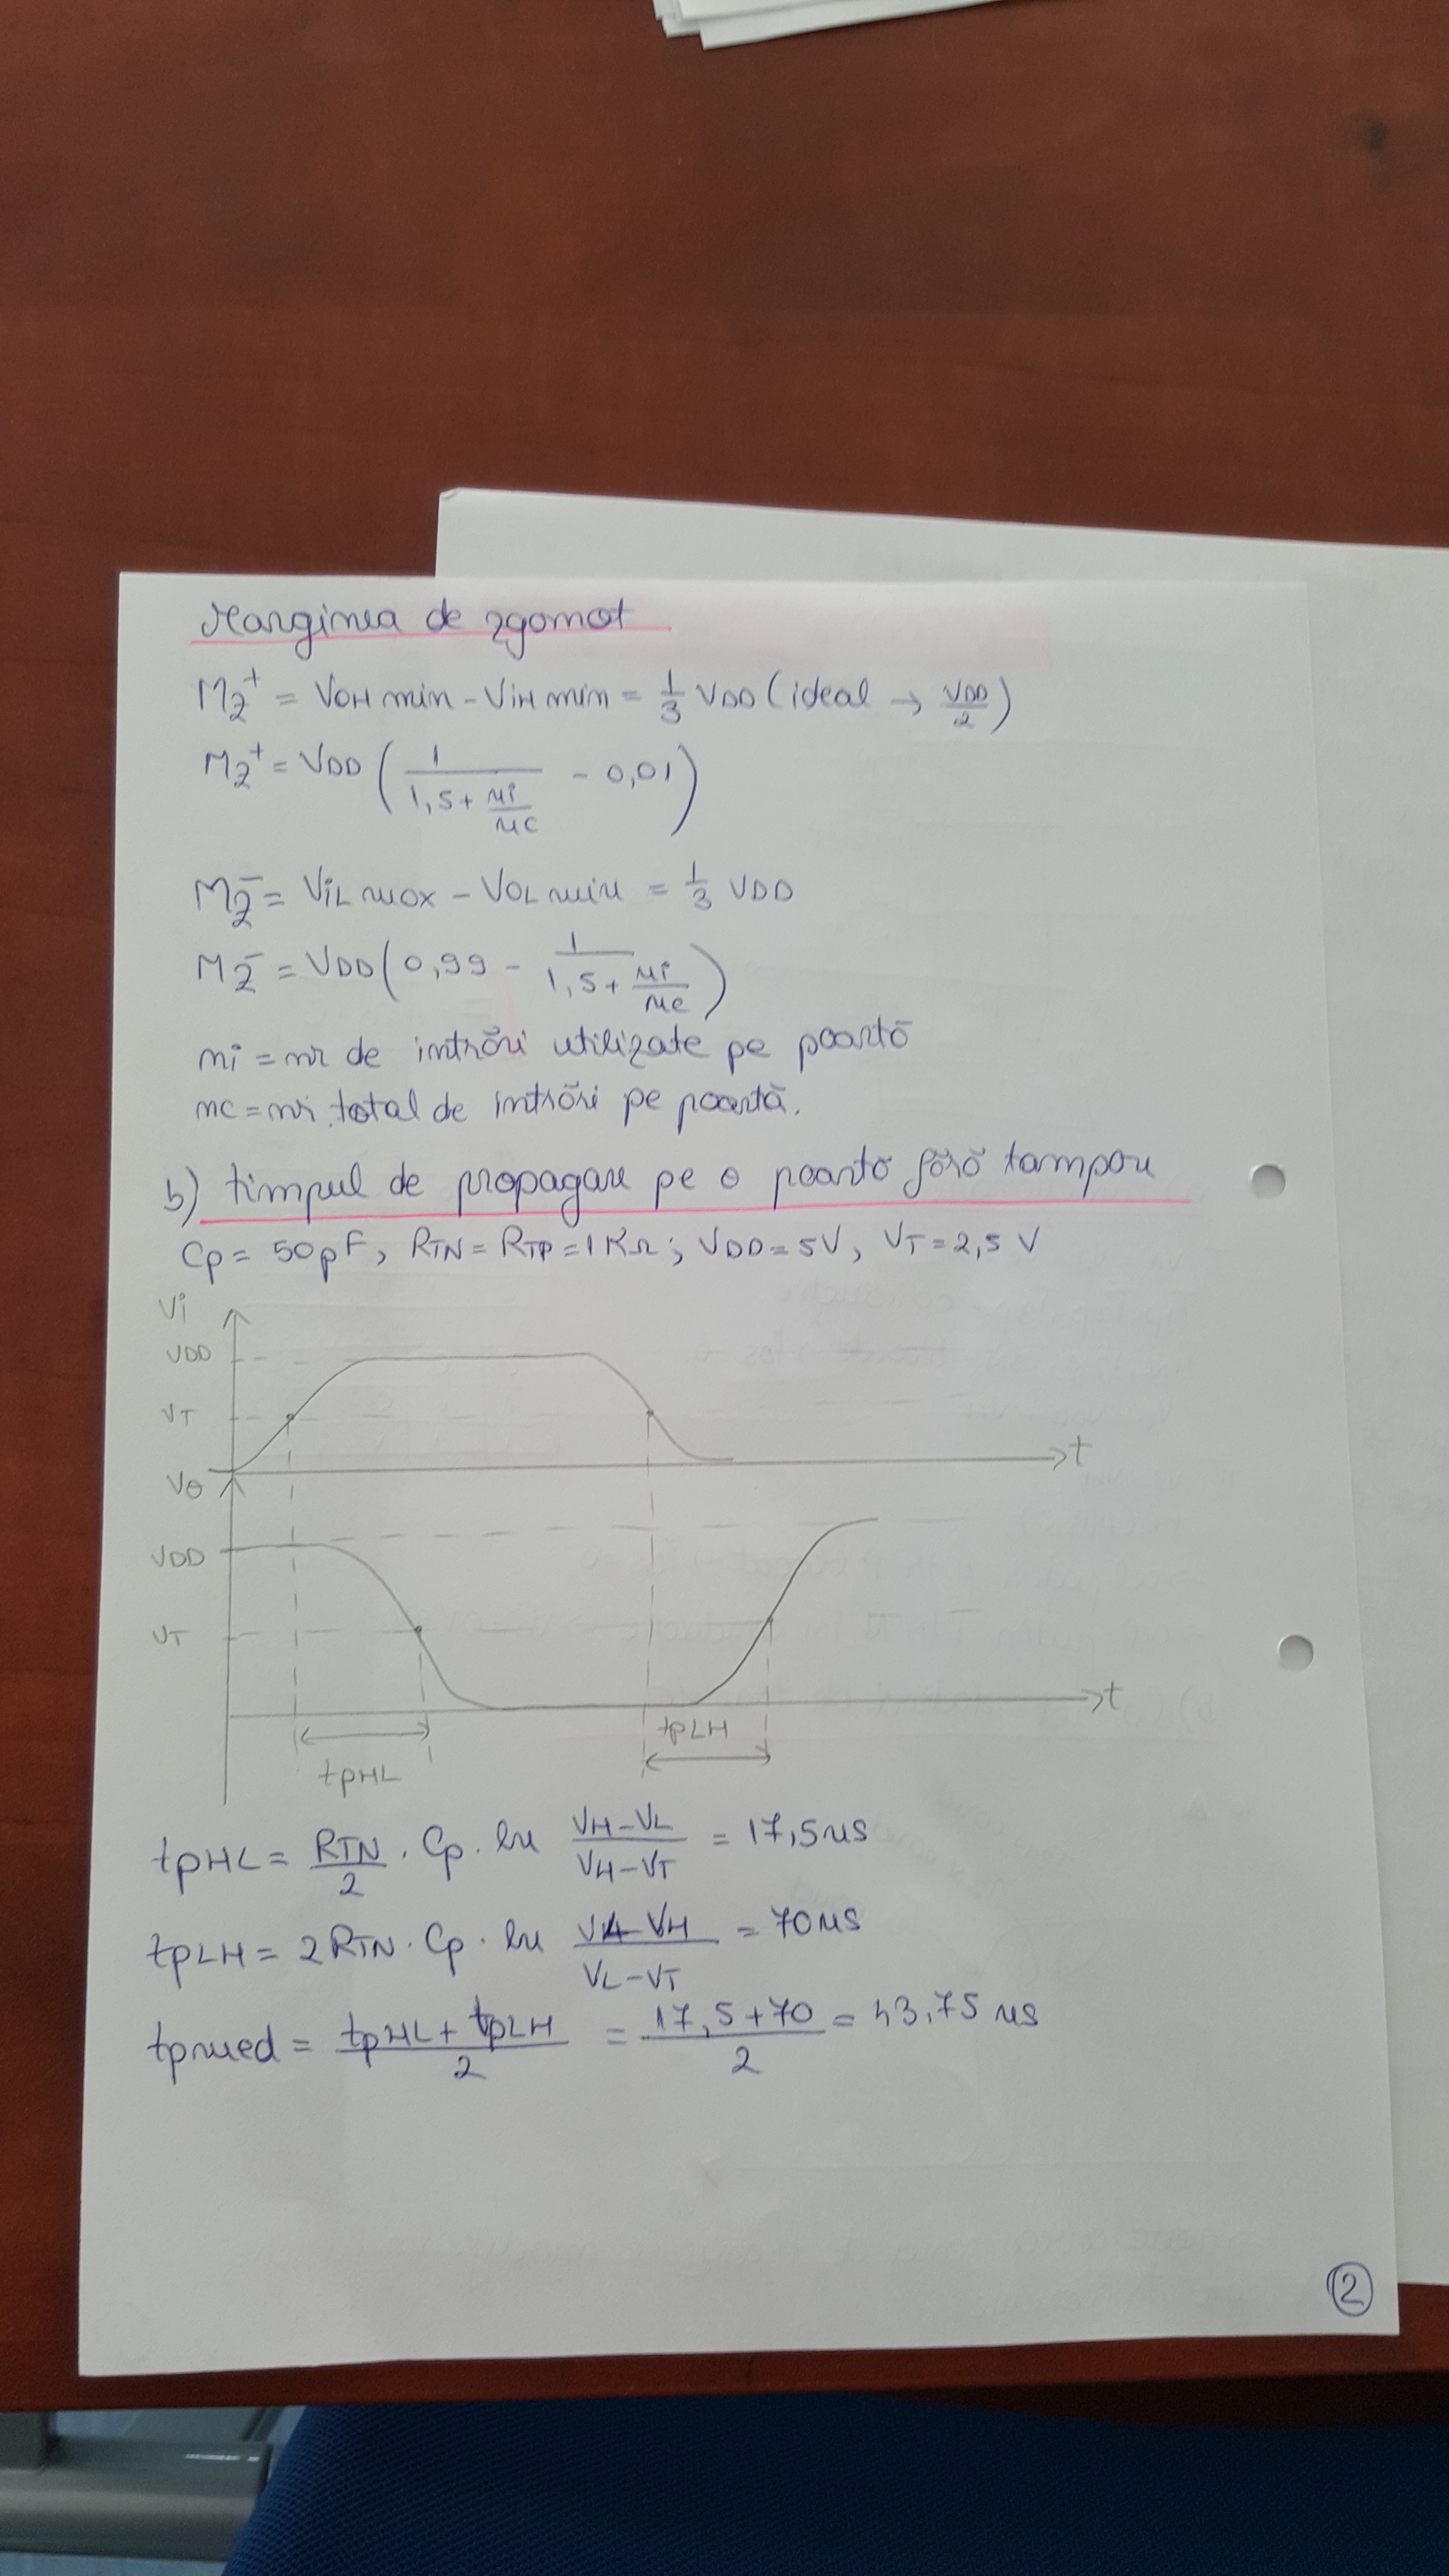 Marginea de zgomot
Mz⁺ = VOH min - ViH min = 1/3 VDD (ideal → VDD/2)
Mz⁺ = VDD (1/(1,5 + ni/nc) - 0,01)
Mz⁻ = ViL max - VOL min = 1/3 VDD
Mz⁻ = VDD (0,99 - 1/(1,5 + ni/nc))
ni = nr de intrări utilizate pe poartă
nc = nr. total de intrări pe poartă.
b) timpul de propagare pe o poartă fără tampon
Cp = 50pF, RTN = RTP = 1KΩ; VDD = 5V, VT = 2,5 V
Vi
VDD
VT
t
Vo
VDD
VT
t
tpLH
tpHL
tpHL = RTN/2 · Cp · ln (VH-VL)/(VH-VT) = 17,5ns
tpLH = 2RTN · Cp · ln (VL-VH)/(VL-VT) = 70ns
tpmed = (tpHL + tpLH)/2 = (17,5+70)/2 = 43,75 ns
2